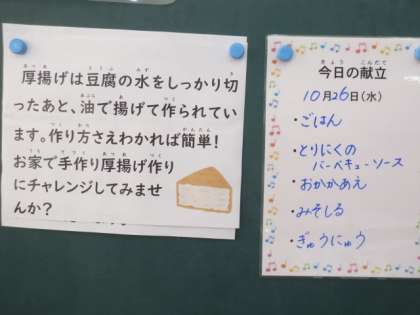 厚揚げは豆腐の水をしっかり切
ったあと、油で揚げて作られてい
ます。作り方さえわかれば簡単!
お家で手作り厚揚げ作り
にチャレンジしてみませ
んか?
今日の献立
10月26日(水)
・ごはん
・とりにくの
バーベキューソース
・おかかあえ
・みそしる
・ぎゅうにゅう